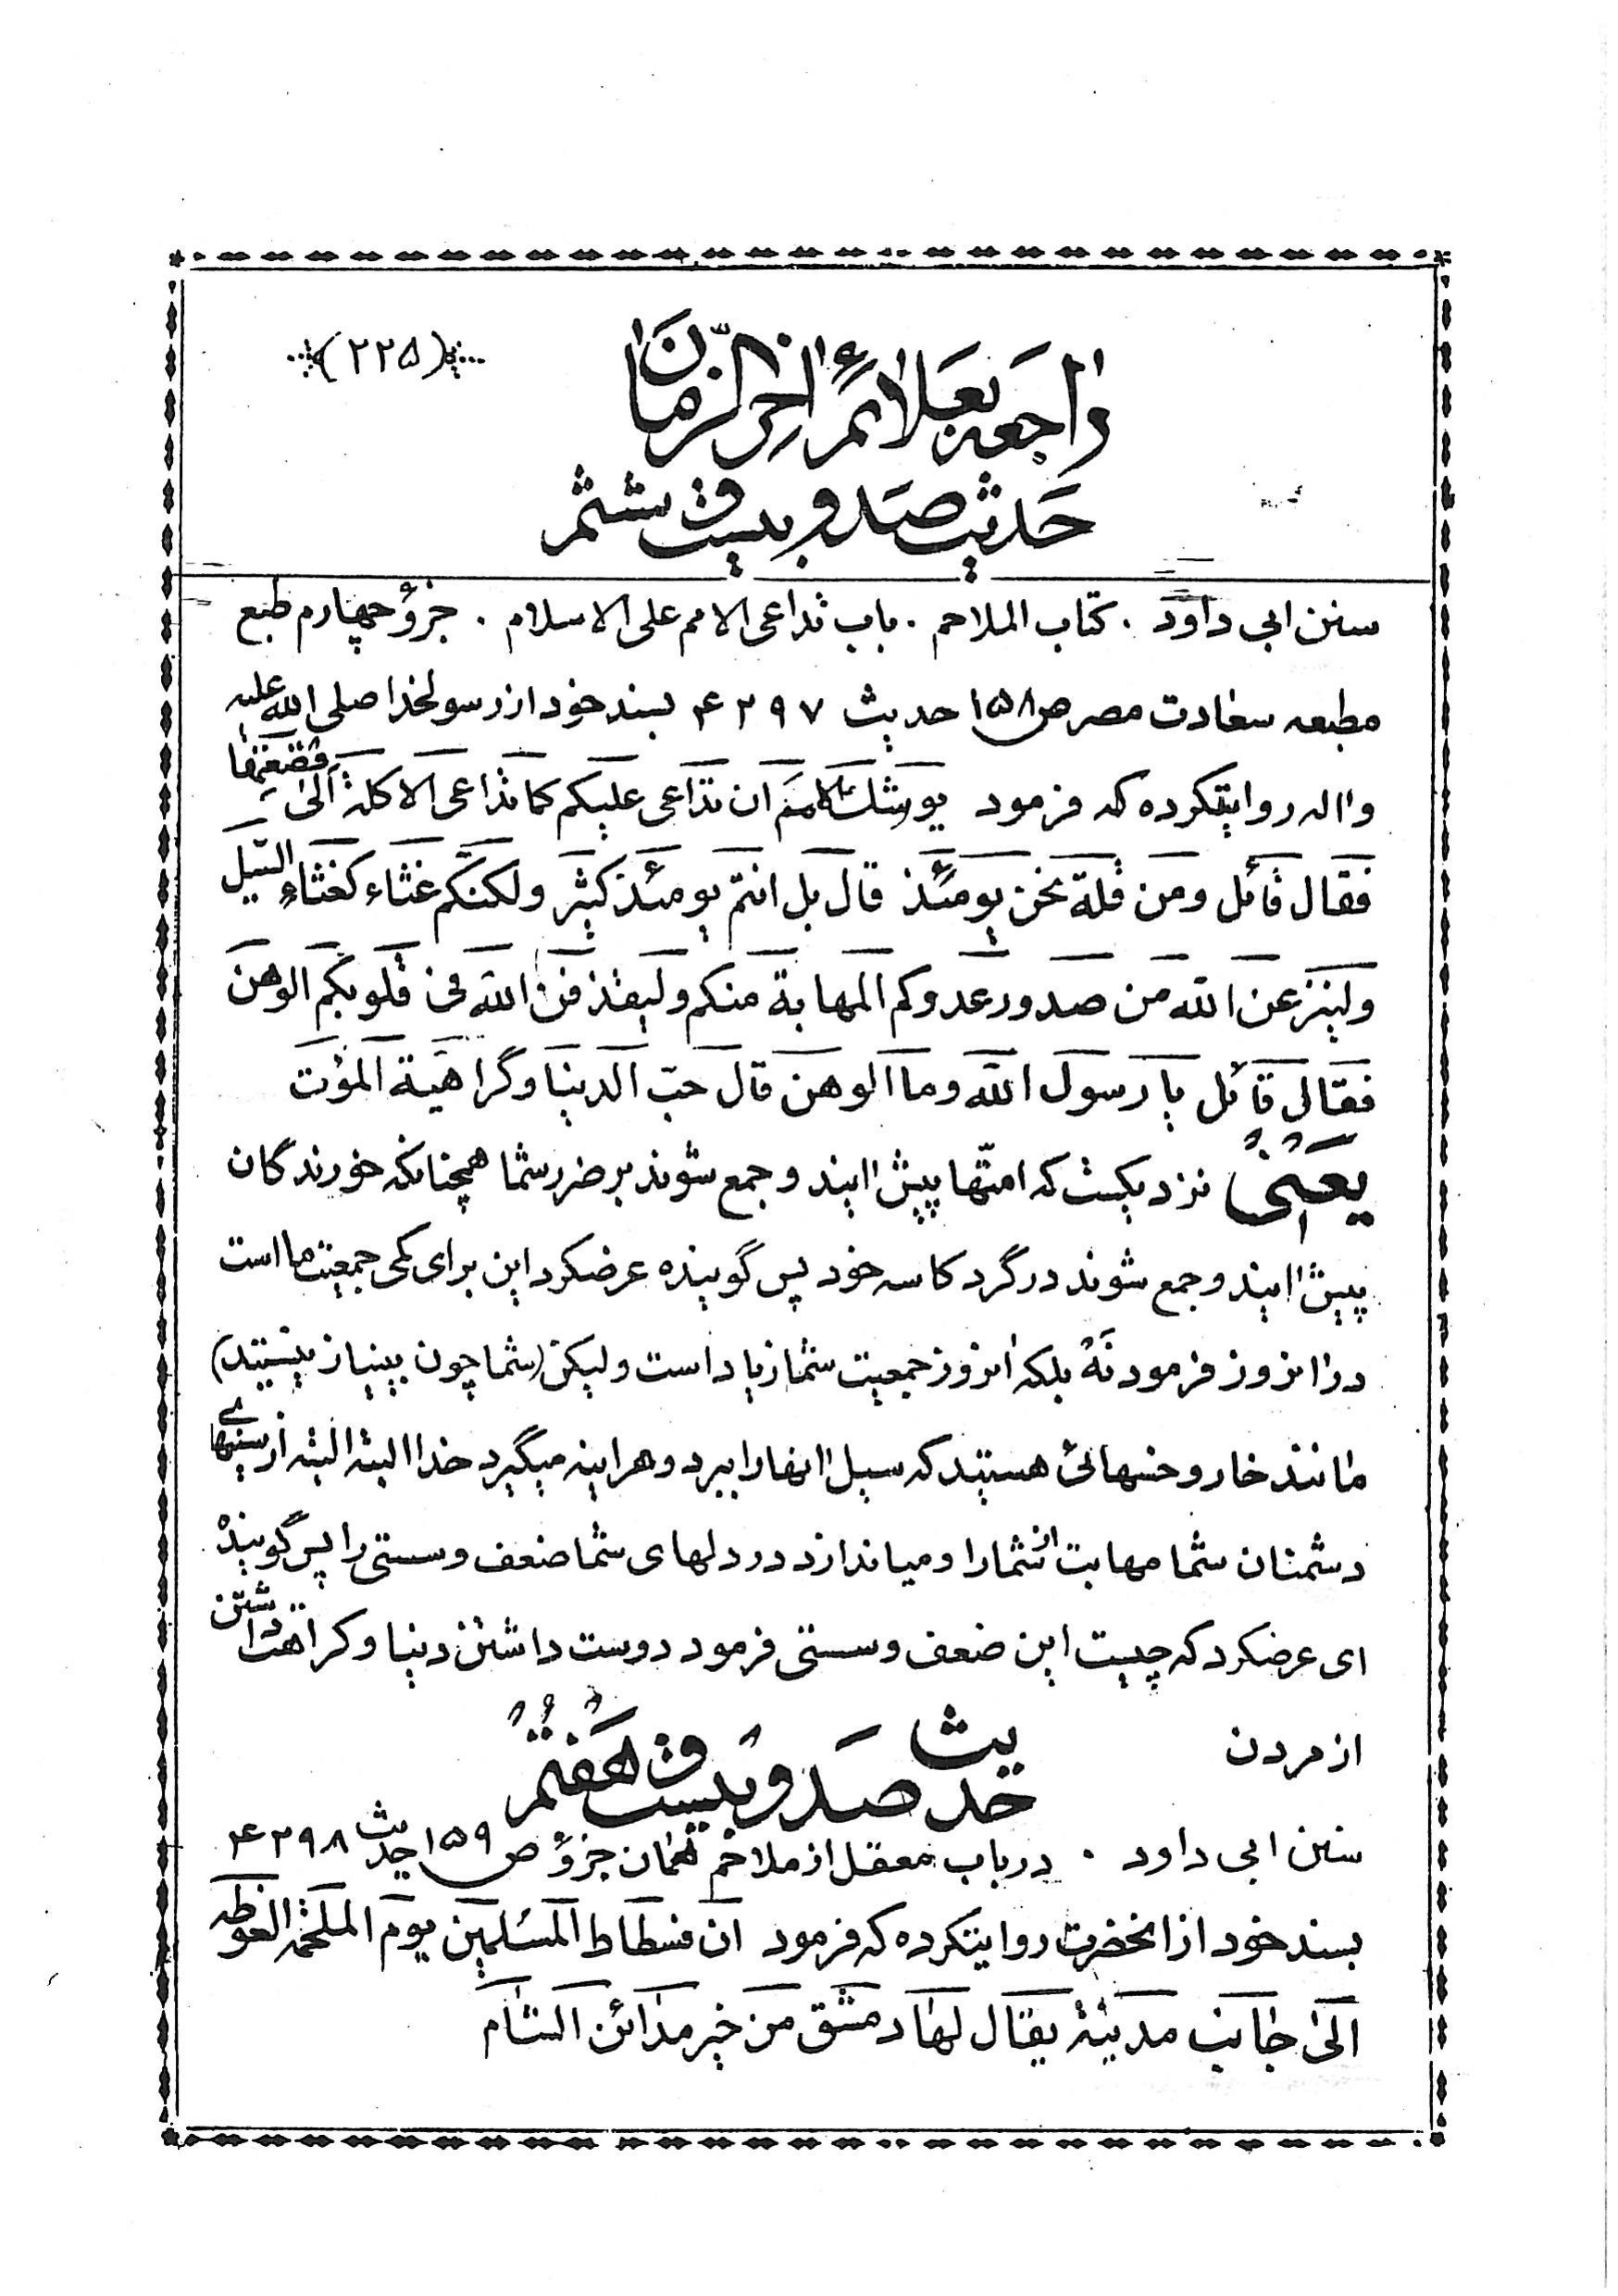 (۲۲۵)
راجعه بعلائم اخر الزمان
حدیث صد و بیست و ششم
سنن ابی داود . کتاب الملاحم . باب تداعی الامم علی الاسلام . جزؤ چهارم طبع
مطبعه سعادت مصر ص ۱۵۸ حدیث ۴۲۹۷ بسند خود از رسولخدا صلی الله علیه
واله روایتکرده که فرمود یوشک الامم ان تداعی علیکم کما تداعی الاکلة الی قصعتها
فقال قائل ومن قلة نحن یومئذ قال بل انتم یومئذ کثیر ولکنکم غثاء کغثاء السیل
ولینزعن الله من صدور عدوکم المهابة منکم ولیقذفن الله فی قلوبکم الوهن
فقال قائل یا رسول الله وما الوهن قال حب الدنیا وکراهیة الموت
یعنی نزدیکست که امتها پیش ایند و جمع شوند بر ضرر شما همچنانکه خورندگان
پیش ایند و جمع شوند در گرد کاسه خود پس گوینده عرضکرد این برای کمی جمعیت ما است
در انروز فرمود نه بلکه انروز جمعیت شما زیاد است ولیکن (شما چون بینیاز نیستید)
مانند خار و خسهائی هستید که سیل انها را ببرد و هراینه میگیرد خدا البته البته از سینهای
دشمنان شما مهابت از شما را و میاندازد در دلهای شما ضعف و سستی را پس گوینده
ای عرضکرد که چیست این ضعف و سستی فرمود دوست داشتن دنیا و کراهت داشتن
از مردن
حدیث صد و بیست و هفتم
سنن ابی داود . در باب معقل از ملاحم همان جزؤ ص ۱۵۹ حدیث ۴۲۹۸
بسند خود از انحضرت روایتکرده که فرمود ان فسطاط المسلمین یوم الملحمة الغوطه
الی جانب مدینة یقال لها دمشق من خیر مدائن الشام